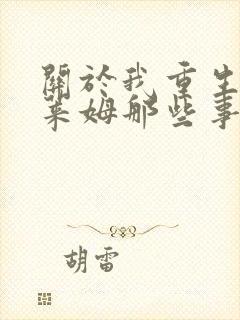 關於我重生
萊姆那些事
胡雷